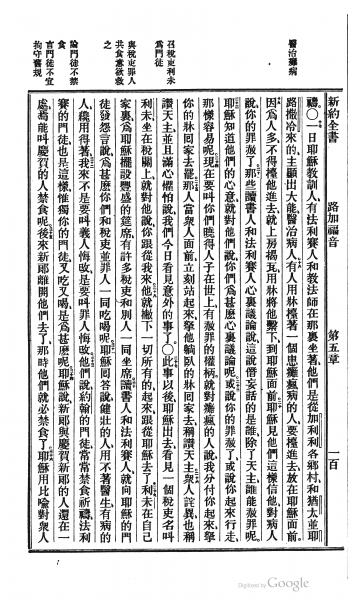 新約全書 路加福音 第五章 一百
醫治癱病
召稅吏利未
爲門徒
與稅吏罪人
共食意欲救
之
論門徒不禁
食
言門徒不宜
拘守舊規
禱○一日耶穌教訓人有法利賽人和教法師在那裏坐著他們是從加利利各鄉村和猶太並耶
路撒冷來的主顯出大能醫治病人有人用牀擡著一個患癱瘓病的人要擡進去放在耶穌面前
因爲人多不得擡他進去就上房揭瓦用牀將他繫下到耶穌面前耶穌見他們這樣信他對病人
說你的罪赦了那些讀書人和法利賽人心裏議論說這說僭妄話的是誰除了天主誰能赦罪呢
耶穌知道他們的心意就對他們說你們爲甚麼心裏議論呢或說你的罪赦了或說你起來行走
那樣容易呢現在要叫你們曉得人子在世上有赦罪的權柄就對癱瘓的人說我分付你起來拏
你的牀回家去罷那人當衆人面前立刻站起來拏他躺臥的牀回家去稱讚天主衆人詫異也稱
讚天主並且滿心懼怕說我們今日看見意外的事了○此事以後耶穌出去看見一個稅吏名叫
利未坐在稅關上就對他說你跟從我來他就撇下一切所有的起來跟從耶穌去了利未在自己
家裏爲耶穌擺設豐盛的筵席有許多稅吏和別人一同坐席讀書人和法利賽人就向耶穌的門
徒發怨言說爲甚麼你們和稅吏並罪人一同吃喝呢耶穌回答說健壯的人用不著醫生有病的
人纔用得著我來不是要叫義人悔改是要叫罪人悔改他們說約翰的門徒常常禁食祈禱法利
賽的門徒也是這樣惟獨你的門徒又吃又喝是爲甚麼呢耶穌說新郎與慶賀新郎的人還在一
處焉能叫慶賀的人禁食呢後來新郎離開他們去了那時他們就必禁食了耶穌用比喻對衆人
Digitized by Google